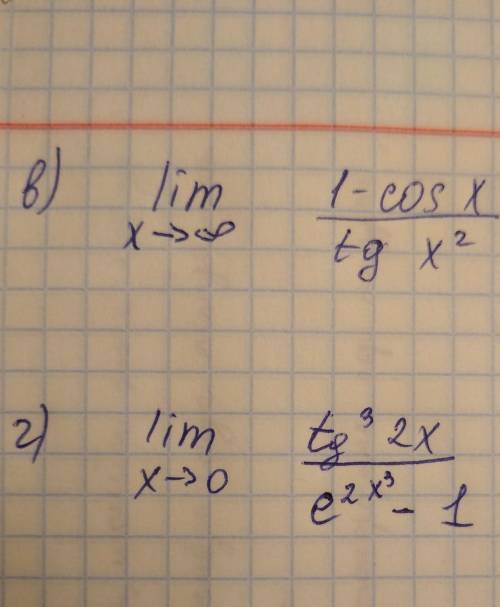 в) lim x→∞ (1-cos x)/(tg x²)
г) lim x→0 (tg³ 2x)/(e^(2x³) - 1)